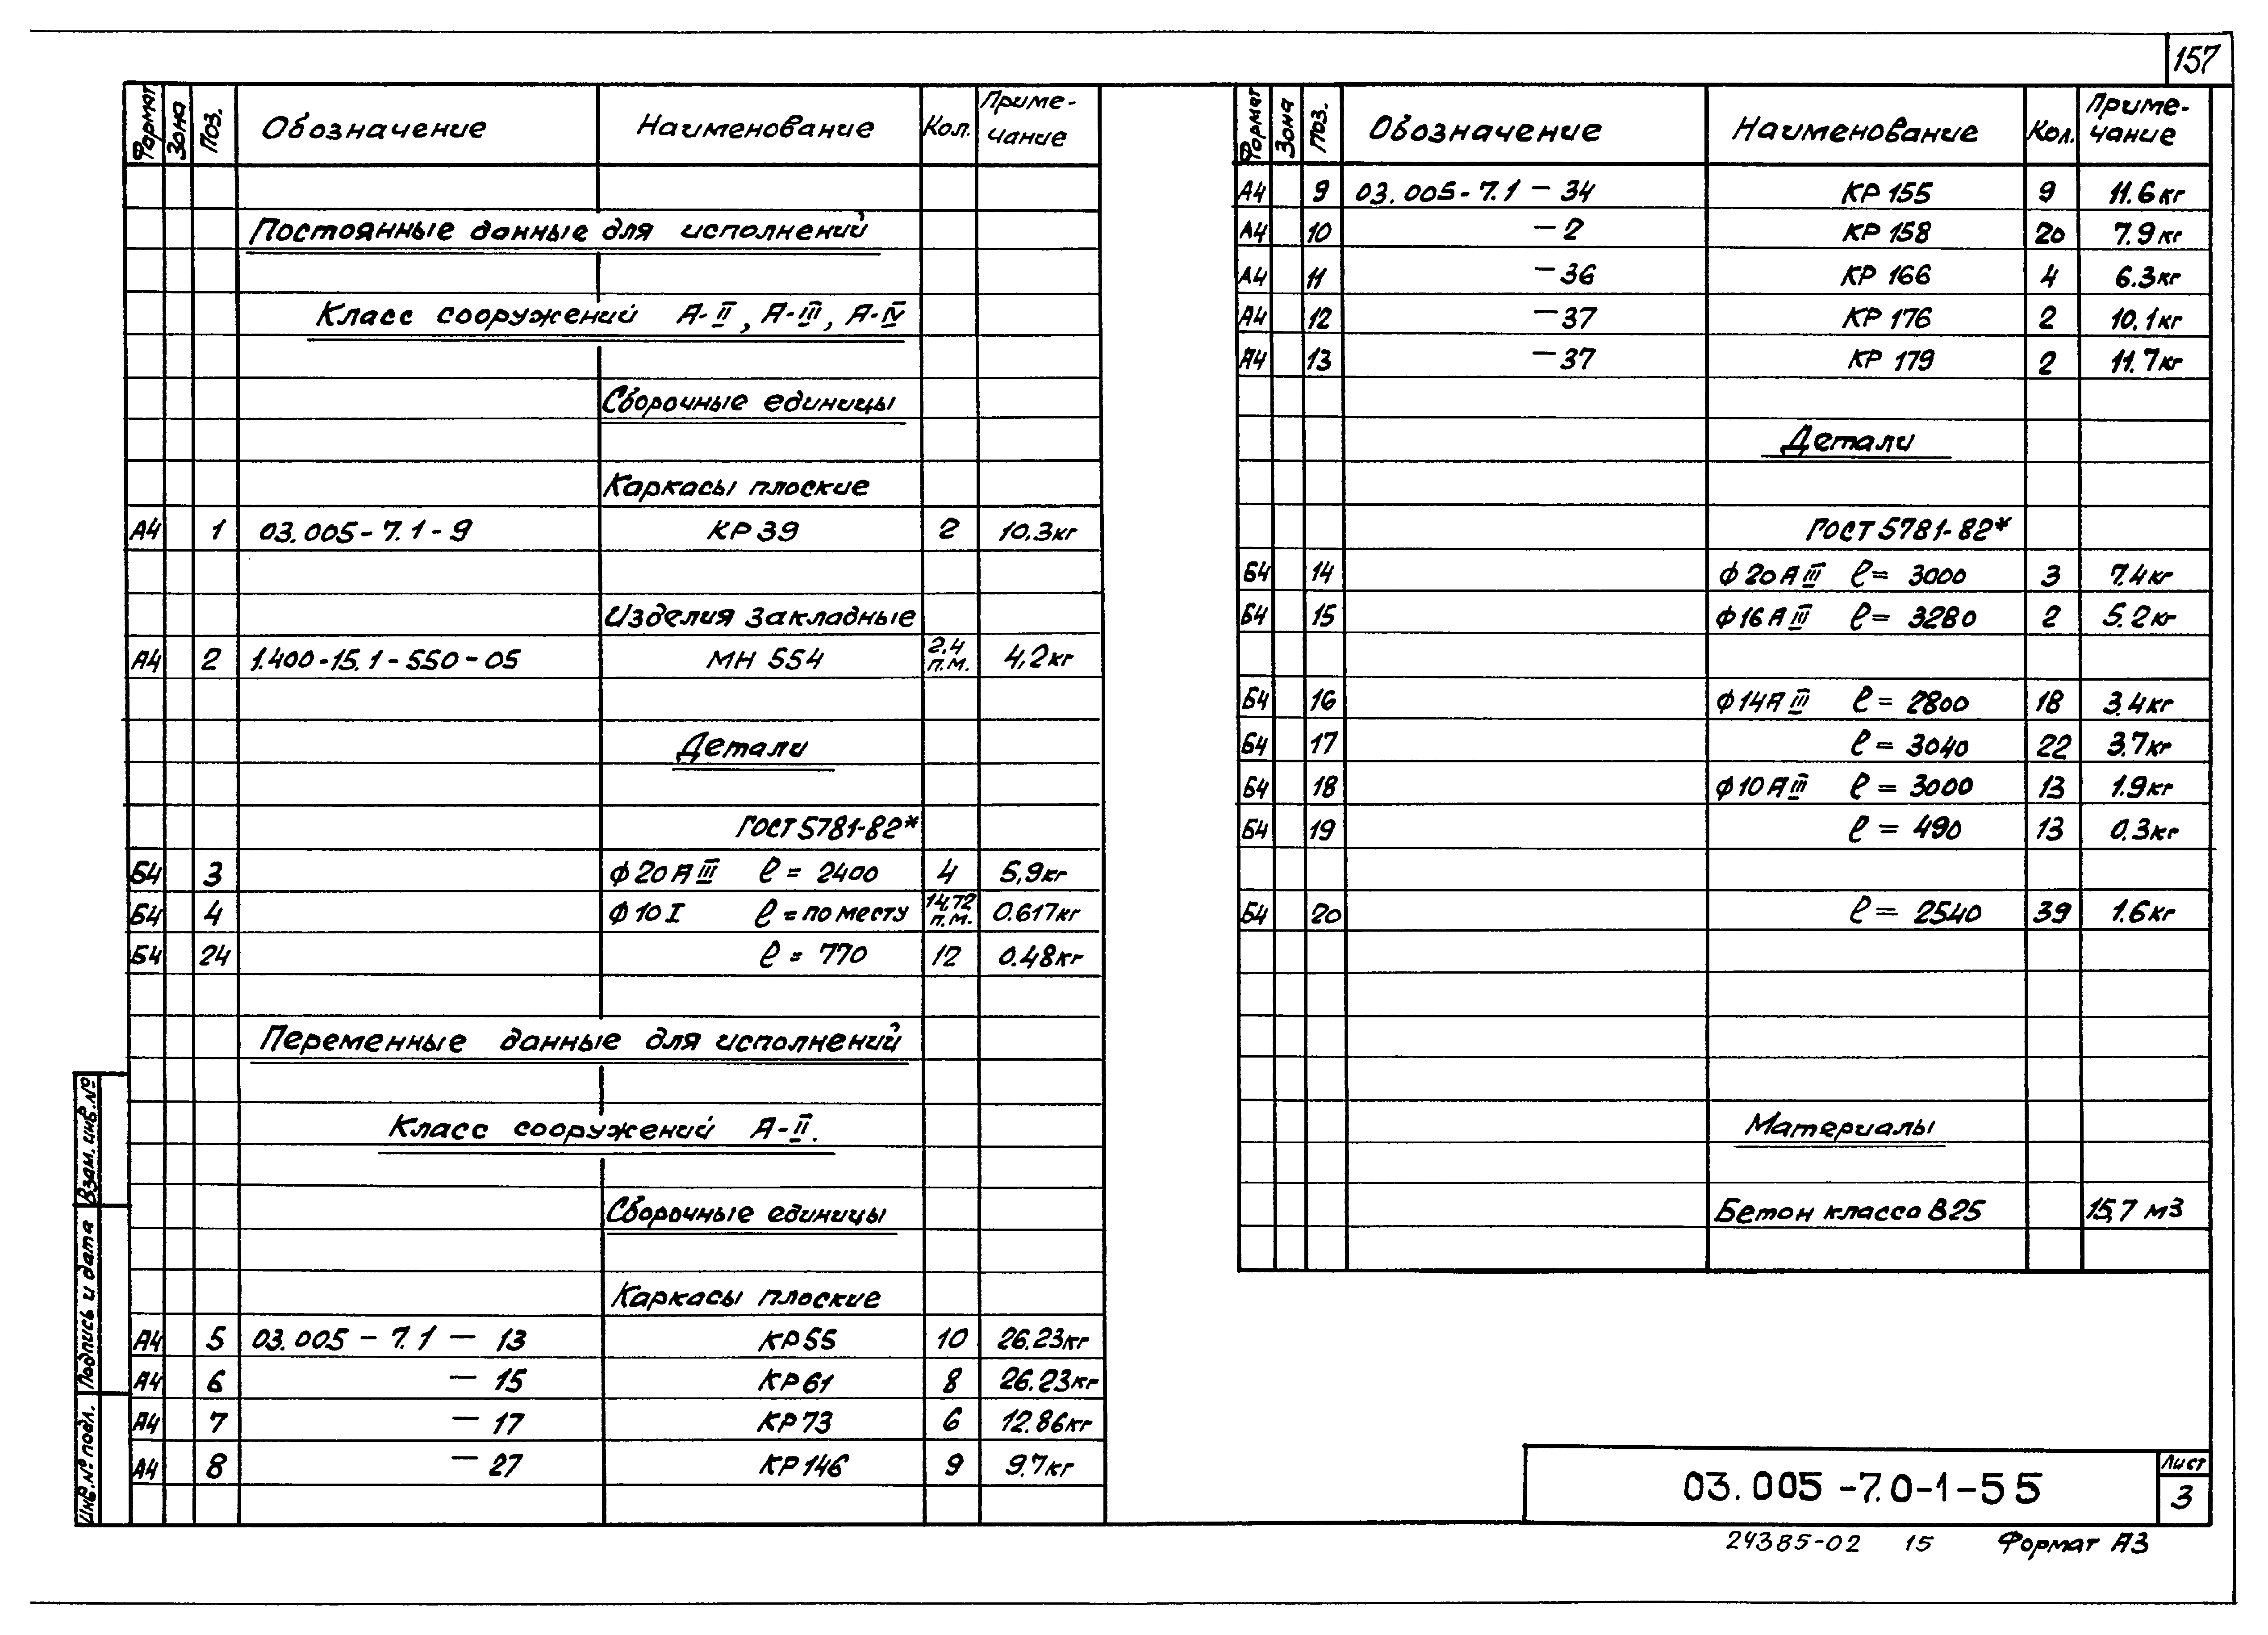 157
Формат Зона Поз. Обозначение Наименование Кол. Приме-
чание
Постоянные данные для исполнений
Класс сооружений А-II, А-III, А-IV
Сборочные единицы
Каркасы плоские
А4 1 03.005-7.1-9 КР39 2 10,3кг
Изделия закладные
А4 2 1.400-15.1-550-05 МН 554 2,4 п.м. 4,2кг
Детали
ГОСТ 5781-82*
Б4 3 ф20АIII ℓ= 2400 4 5,9кг
Б4 4 ф10I ℓ=по месту 14,72 п.м. 0.617кг
Б4 24 ℓ= 770 12 0.48кг
Переменные данные для исполнений
Класс сооружений А-II.
Сборочные единицы
Каркасы плоские
А4 5 03.005-7.1-13 КР55 10 26.23кг
А4 6 -15 КР61 8 26.23кг
А4 7 -17 КР73 6 12.86кг
А4 8 -27 КР146 9 9.7кг
Формат Зона Поз. Обозначение Наименование Кол. Приме-
чание
А4 9 03.005-7.1-34 КР155 9 11.6кг
А4 10 -2 КР158 20 7.9кг
А4 11 -36 КР166 4 6.3кг
А4 12 -37 КР176 2 10.1кг
А4 13 -37 КР179 2 11.7кг
Детали
ГОСТ 5781-82*
Б4 14 ф20АIII ℓ= 3000 3 7.4кг
Б4 15 ф16АIII ℓ= 3280 2 5.2кг
Б4 16 ф14АIII ℓ= 2800 18 3.4кг
Б4 17 ℓ= 3040 22 3.7кг
Б4 18 ф10АIII ℓ= 3000 13 1.9кг
Б4 19 ℓ= 490 13 0.3кг
Б4 20 ℓ= 2540 39 1.6кг
Материалы
Бетон класса В25 15,7 м3
Взам. инв.№
Подпись и дата
Инв.№ подл.
03.005-7.0-1-55
Лист
3
24385-02 15 Формат А3